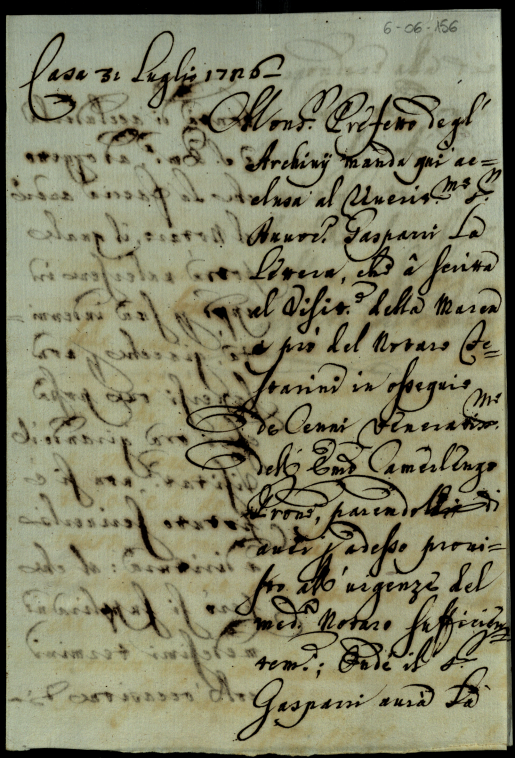 6-06-156
Casa 31 Luglio 1726
Mons.r Prefetto degl'
Archivij manda qui ac=
clusa al Uneriss.mo S.r
Auuoc.o Gasparri La
Lettera, che à scritta
al Visit.e della Marca
à prò del Notaro Ce=
starini in ossequio
de Cenni Veneratis.mi
dell' Em.o Camerlengo
Prone, parendoli di
auer p adesso proui=
sto all' urgenze del
med.o Notaro sufficien=
tem.e; Onde il S.r
Gasparri aurà La